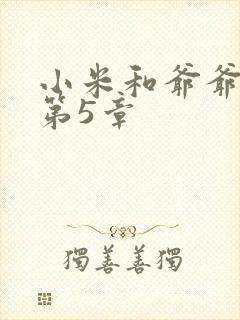 小米和爷爷
第5章
獨善善獨